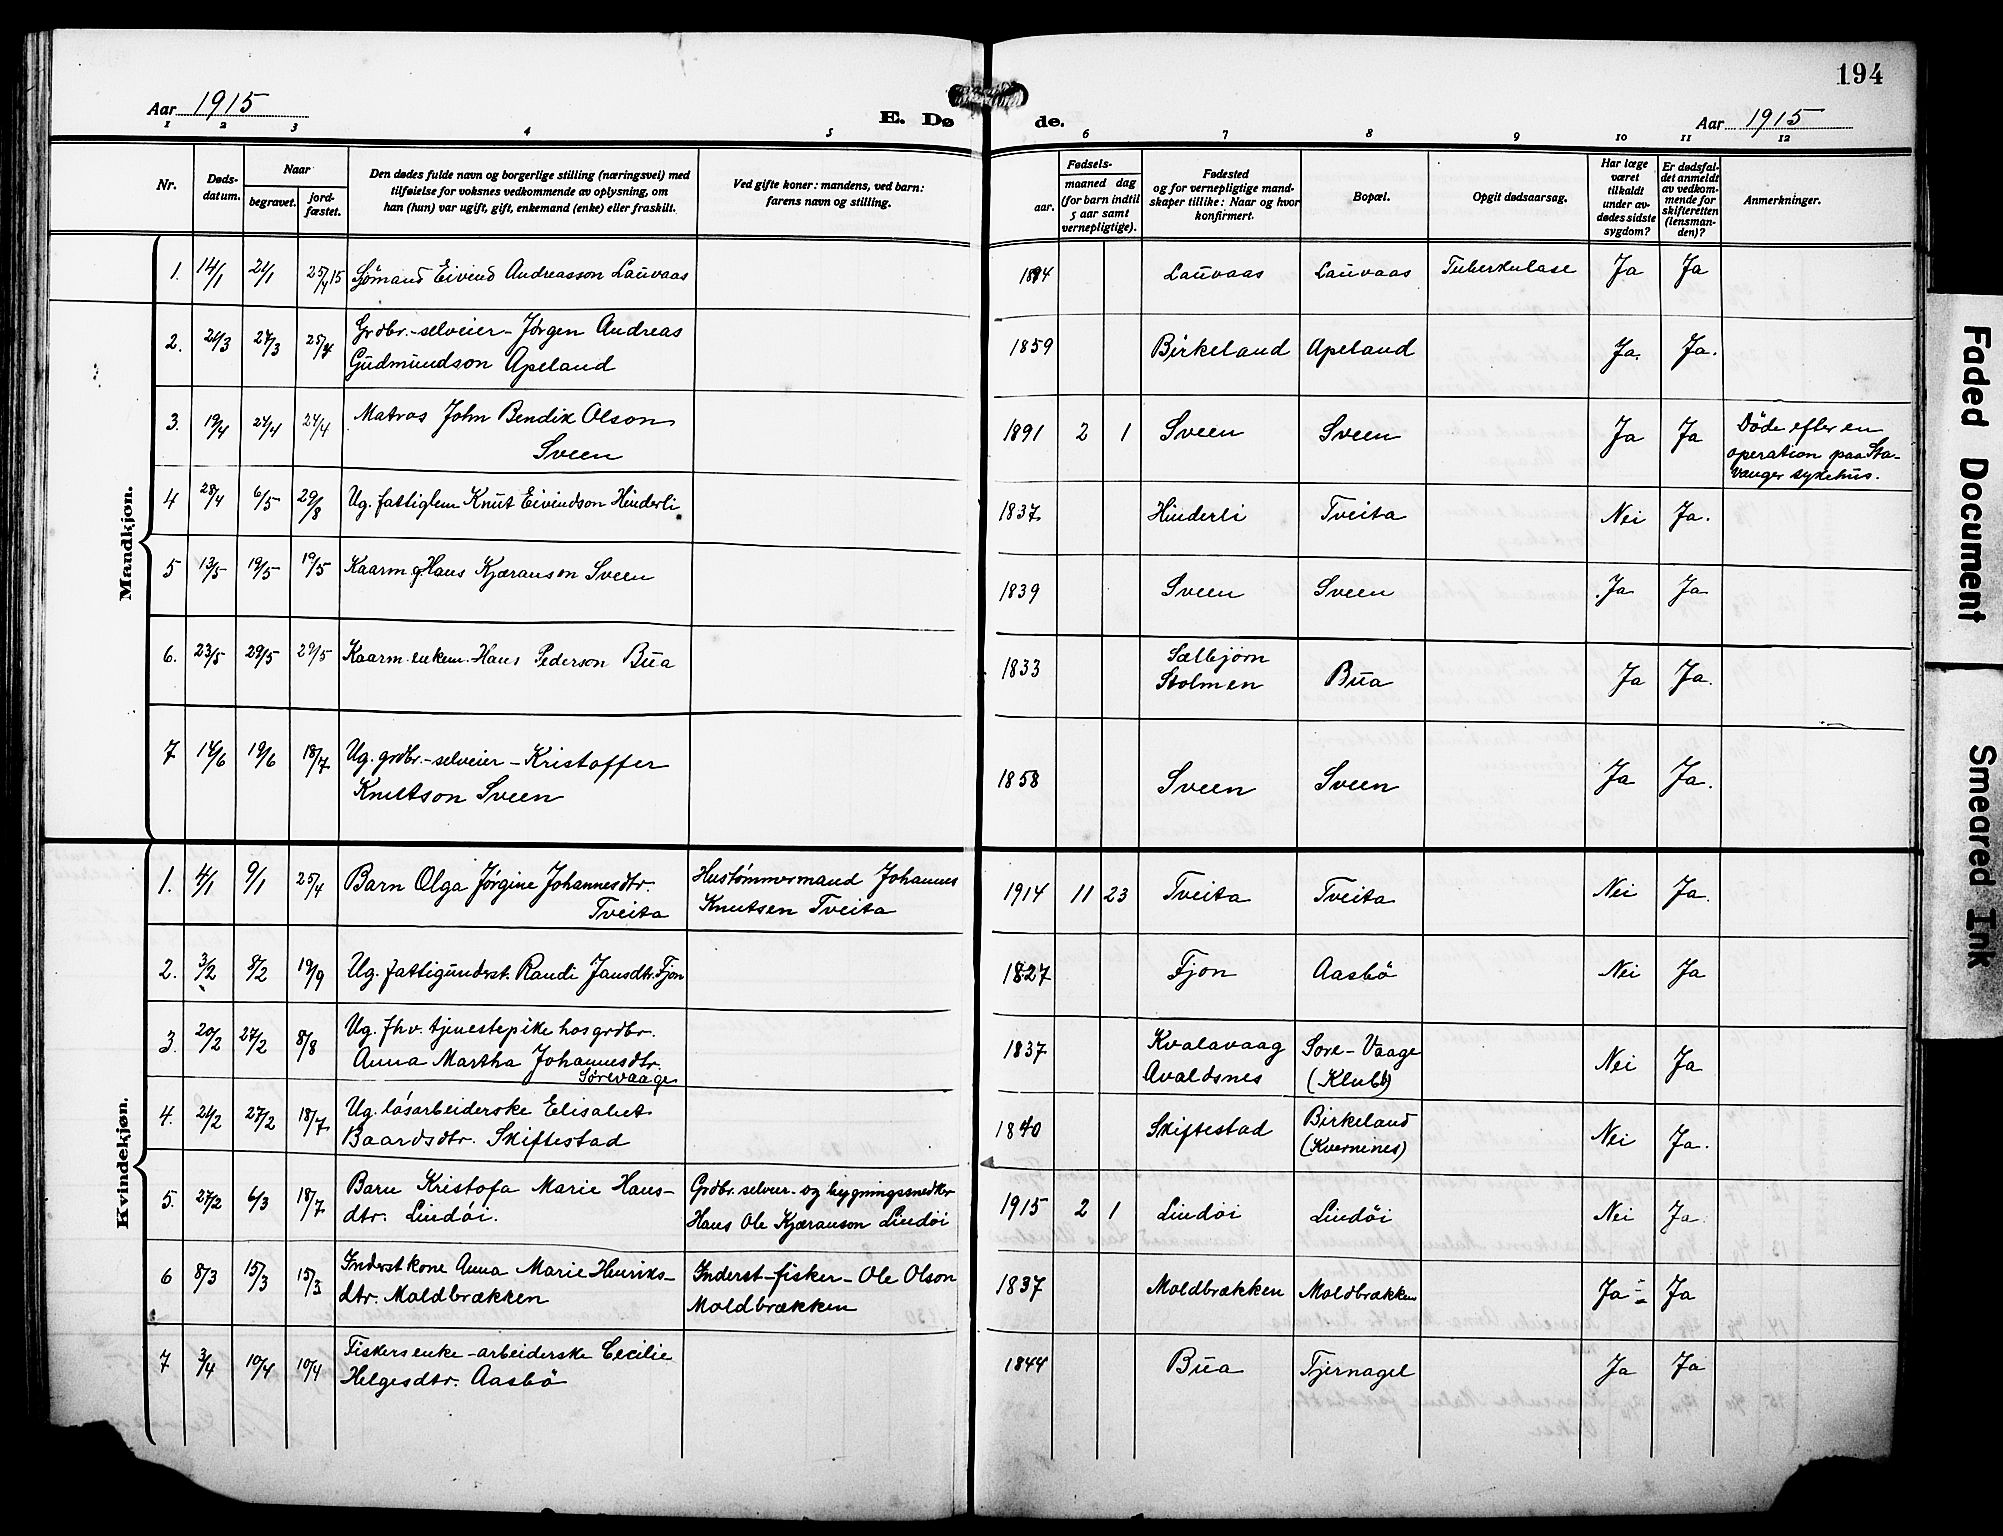 194
Aar 1915
E. Døde.
Aar 1915
1 2 3 4 5 6 7 8 9 10 11 12
Nr.
Døds-
datum.
Naar
begravet.
jord-
fæstet.
Den dødes fulde navn og borgerlige stilling (næringsvei) med
tilføielse for voksnes vedkommende av oplysning, om
han (hun) var ugift, gift, enkemand (enke) eller fraskilt.
Ved gifte koner: mandens, ved barn:
farens navn og stilling.
Fødsels-
aar.
maaned dag
(for barn indtil
5 aar samt
vernepligtige).
Fødested
og for vernepligtige mand-
skaper tillike: Naar og hvor
konfirmert.
Bopæl.
Opgit dødsaarsag.
Har læge
været
tilkaldt
under av-
dødes sidste
sygdom?
Er dødsfal-
det anmeldt
av vedkom-
mende for
skifteretten
(lensman-
den)?
Anmerkninger.
Mandkjøn.
1. 14/1 21/1 25/4 15 Sjømand Eivind Andreasson Lauvaas 1894 Lauvaas Lauvaas Tuberkulose Ja Ja
2. 21/3 27/3 25/4 Grdbr.-selveier-Jørgen Andreas
Gudmundson Apeland 1859 Birkeland Apeland Ja. Ja.
3. 19/4 24/4 24/4 Matros John Bendik Olson
Sveen 1891 2 1 Sveen Sveen Ja Ja Döde efter en
operation paa Sta-
vanger sykehus.
4 28/4 6/5 29/8 Ug. fattiglem Knut Eivindson Hinderli 1837 Hinderli Tveita Nei Ja.
5 13/5 19/5 19/5 Kaarm. g. Hans Kjæranson Sveen 1839 Sveen Sveen Ja Ja
6. 23/5 29/5 29/5 Kaarm. enkem. Hans Pederson Bua 1833 Sælbjørn
Stolmen Bua Ja Ja.
7 14/6 19/6 18/7 Ug. grdbr.-selveier-Kristoffer
Knutson Sveen 1858 Sveen Sveen Ja Ja.
Kvindekjøn.
1. 4/1 9/1 25/4 Barn Olga Jørgine Johannesdtr.
Tveita Hustömmermand Johannes
Knutsen Tveita 1914 11 23 Tveita Tveita Nei Ja.
2. 3/2 8/2 19/9 Ug. fattigunderst. Randi Jansdtr. Fjon 1827 Fjon Aasbö Nei Ja
3. 20/2 27/2 8/8 Ug. fhv. tjenestepike hos grdbr.
Anna Martha Johannesdtr.
Sørevaage 1837 Kvalavaag
Avaldsnes Søre-Vaage
(Klubb) Nei Ja
4. 21/2 27/2 18/7 Ug. lösarbeiderske Elisabet
Baardsdtr. Skiftestad 1840 Skiftestad Birkeland
(Kvernines) Nei Ja.
5. 27/2 6/3 18/7 Barn Kristofa Marie Hans-
dtr. Lindöi. Grdbr. selveier- og bygningssnedker
Hans Ole Kjæranson Lindöi 1915 2 1 Lindöi Lindöi Nei Ja
6 8/3 15/3 15/3 Inderst kone Anna Marie Henriks-
dtr. Moldbrækken Inderst-fisker-Ole Olson
Moldbrækken 1837 Moldbrækken Moldbrækken Ja Ja
7 3/4 10/4 10/4 Fiskersenke-arbeiderske Cecilie
Helgesdtr. Aasbö 1844 Bua Tjernagel Ja Ja
Faded Document
Smeared Ink